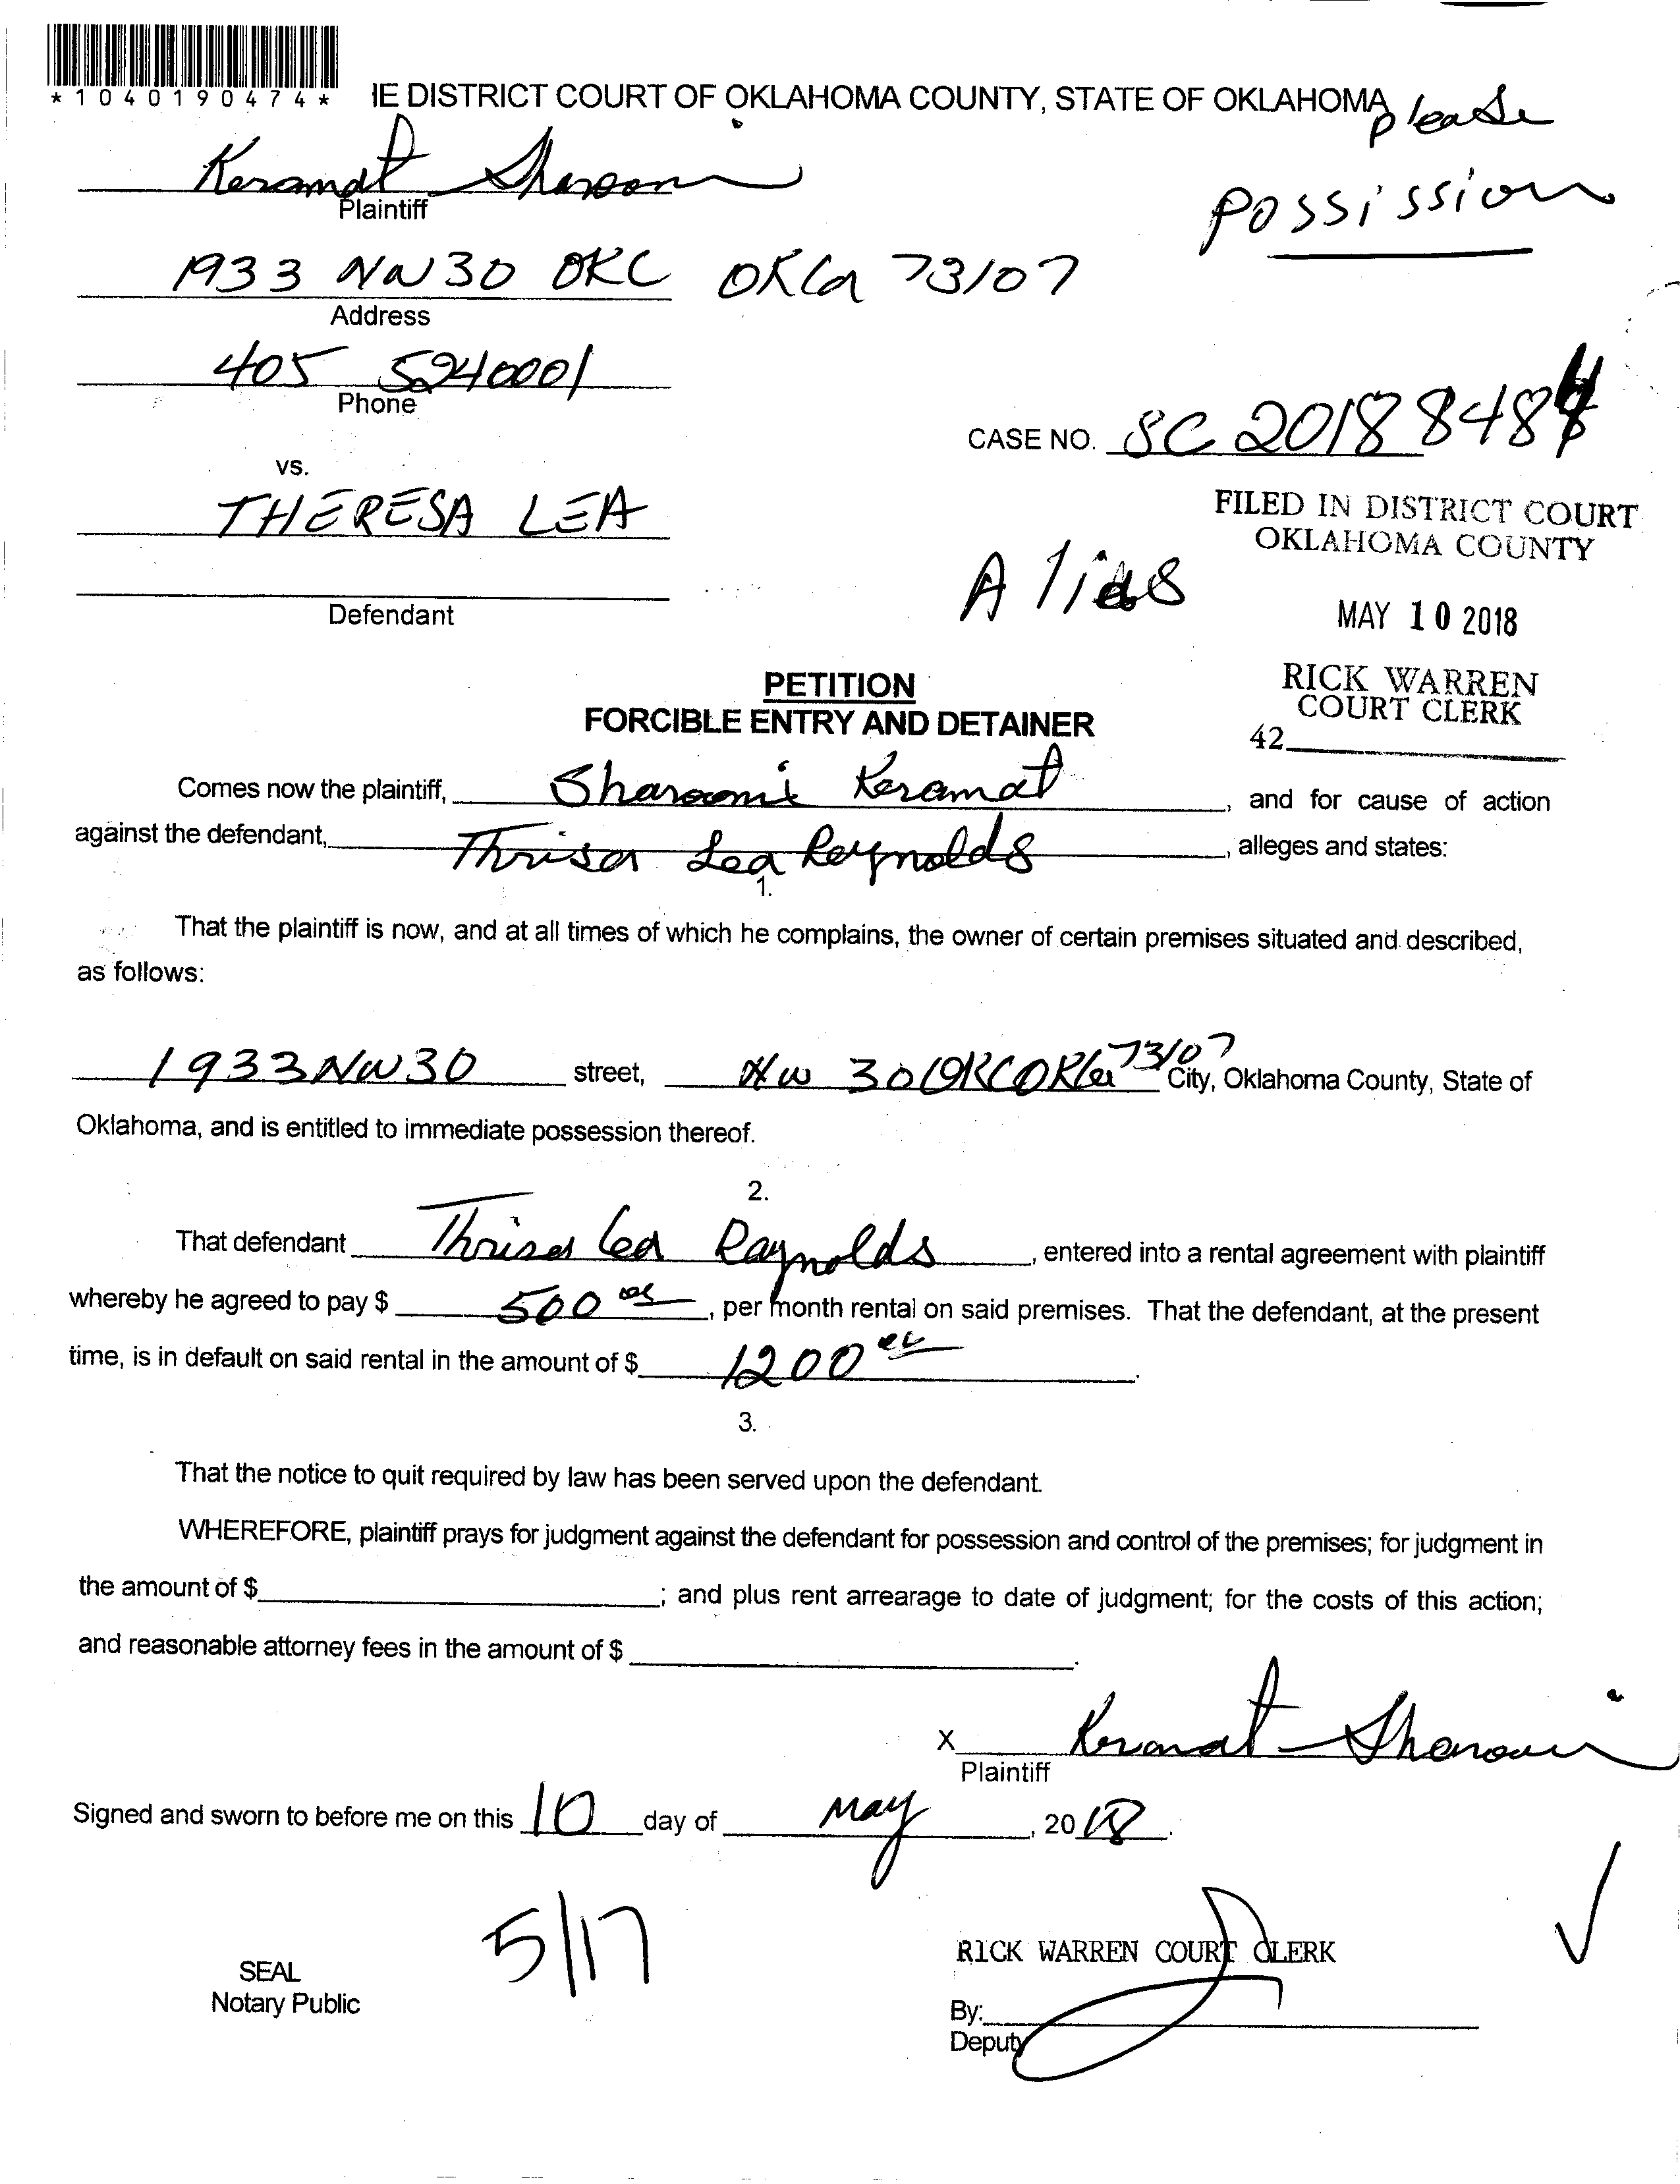 *1040190474*
IE DISTRICT COURT OF OKLAHOMA COUNTY, STATE OF OKLAHOMA
please
Keramat Sharooni
Plaintiff
possission
1933 NW 30 OKC OKla 73107
Address
405 5240001
Phone
CASE NO. SC 2018 8484
vs.
THERESA LEA
FILED IN DISTRICT COURT
OKLAHOMA COUNTY
Alias
Defendant
MAY 10 2018
PETITION
RICK WARREN
COURT CLERK
FORCIBLE ENTRY AND DETAINER
42
Comes now the plaintiff, Sharooni Keramat, and for cause of action
against the defendant, Thrisa Lea Reynolds, alleges and states:
1.
That the plaintiff is now, and at all times of which he complains, the owner of certain premises situated and described,
as follows:
1933 NW 30 street, NW 30 OKC OKla 73107 City, Oklahoma County, State of
Oklahoma, and is entitled to immediate possession thereof.
2.
That defendant Thrisa Lea Raynolds, entered into a rental agreement with plaintiff
whereby he agreed to pay $ 500, per month rental on said premises. That the defendant, at the present
time, is in default on said rental in the amount of $ 1200.
3.
That the notice to quit required by law has been served upon the defendant.
WHEREFORE, plaintiff prays for judgment against the defendant for possession and control of the premises; for judgment in
the amount of $; and plus rent arrearage to date of judgment; for the costs of this action;
and reasonable attorney fees in the amount of $.
X Keramat Sharooni
Plaintiff
Signed and sworn to before me on this 10 day of May, 2018.
5/17
RICK WARREN COURT CLERK
SEAL
Notary Public
By:
Deputy